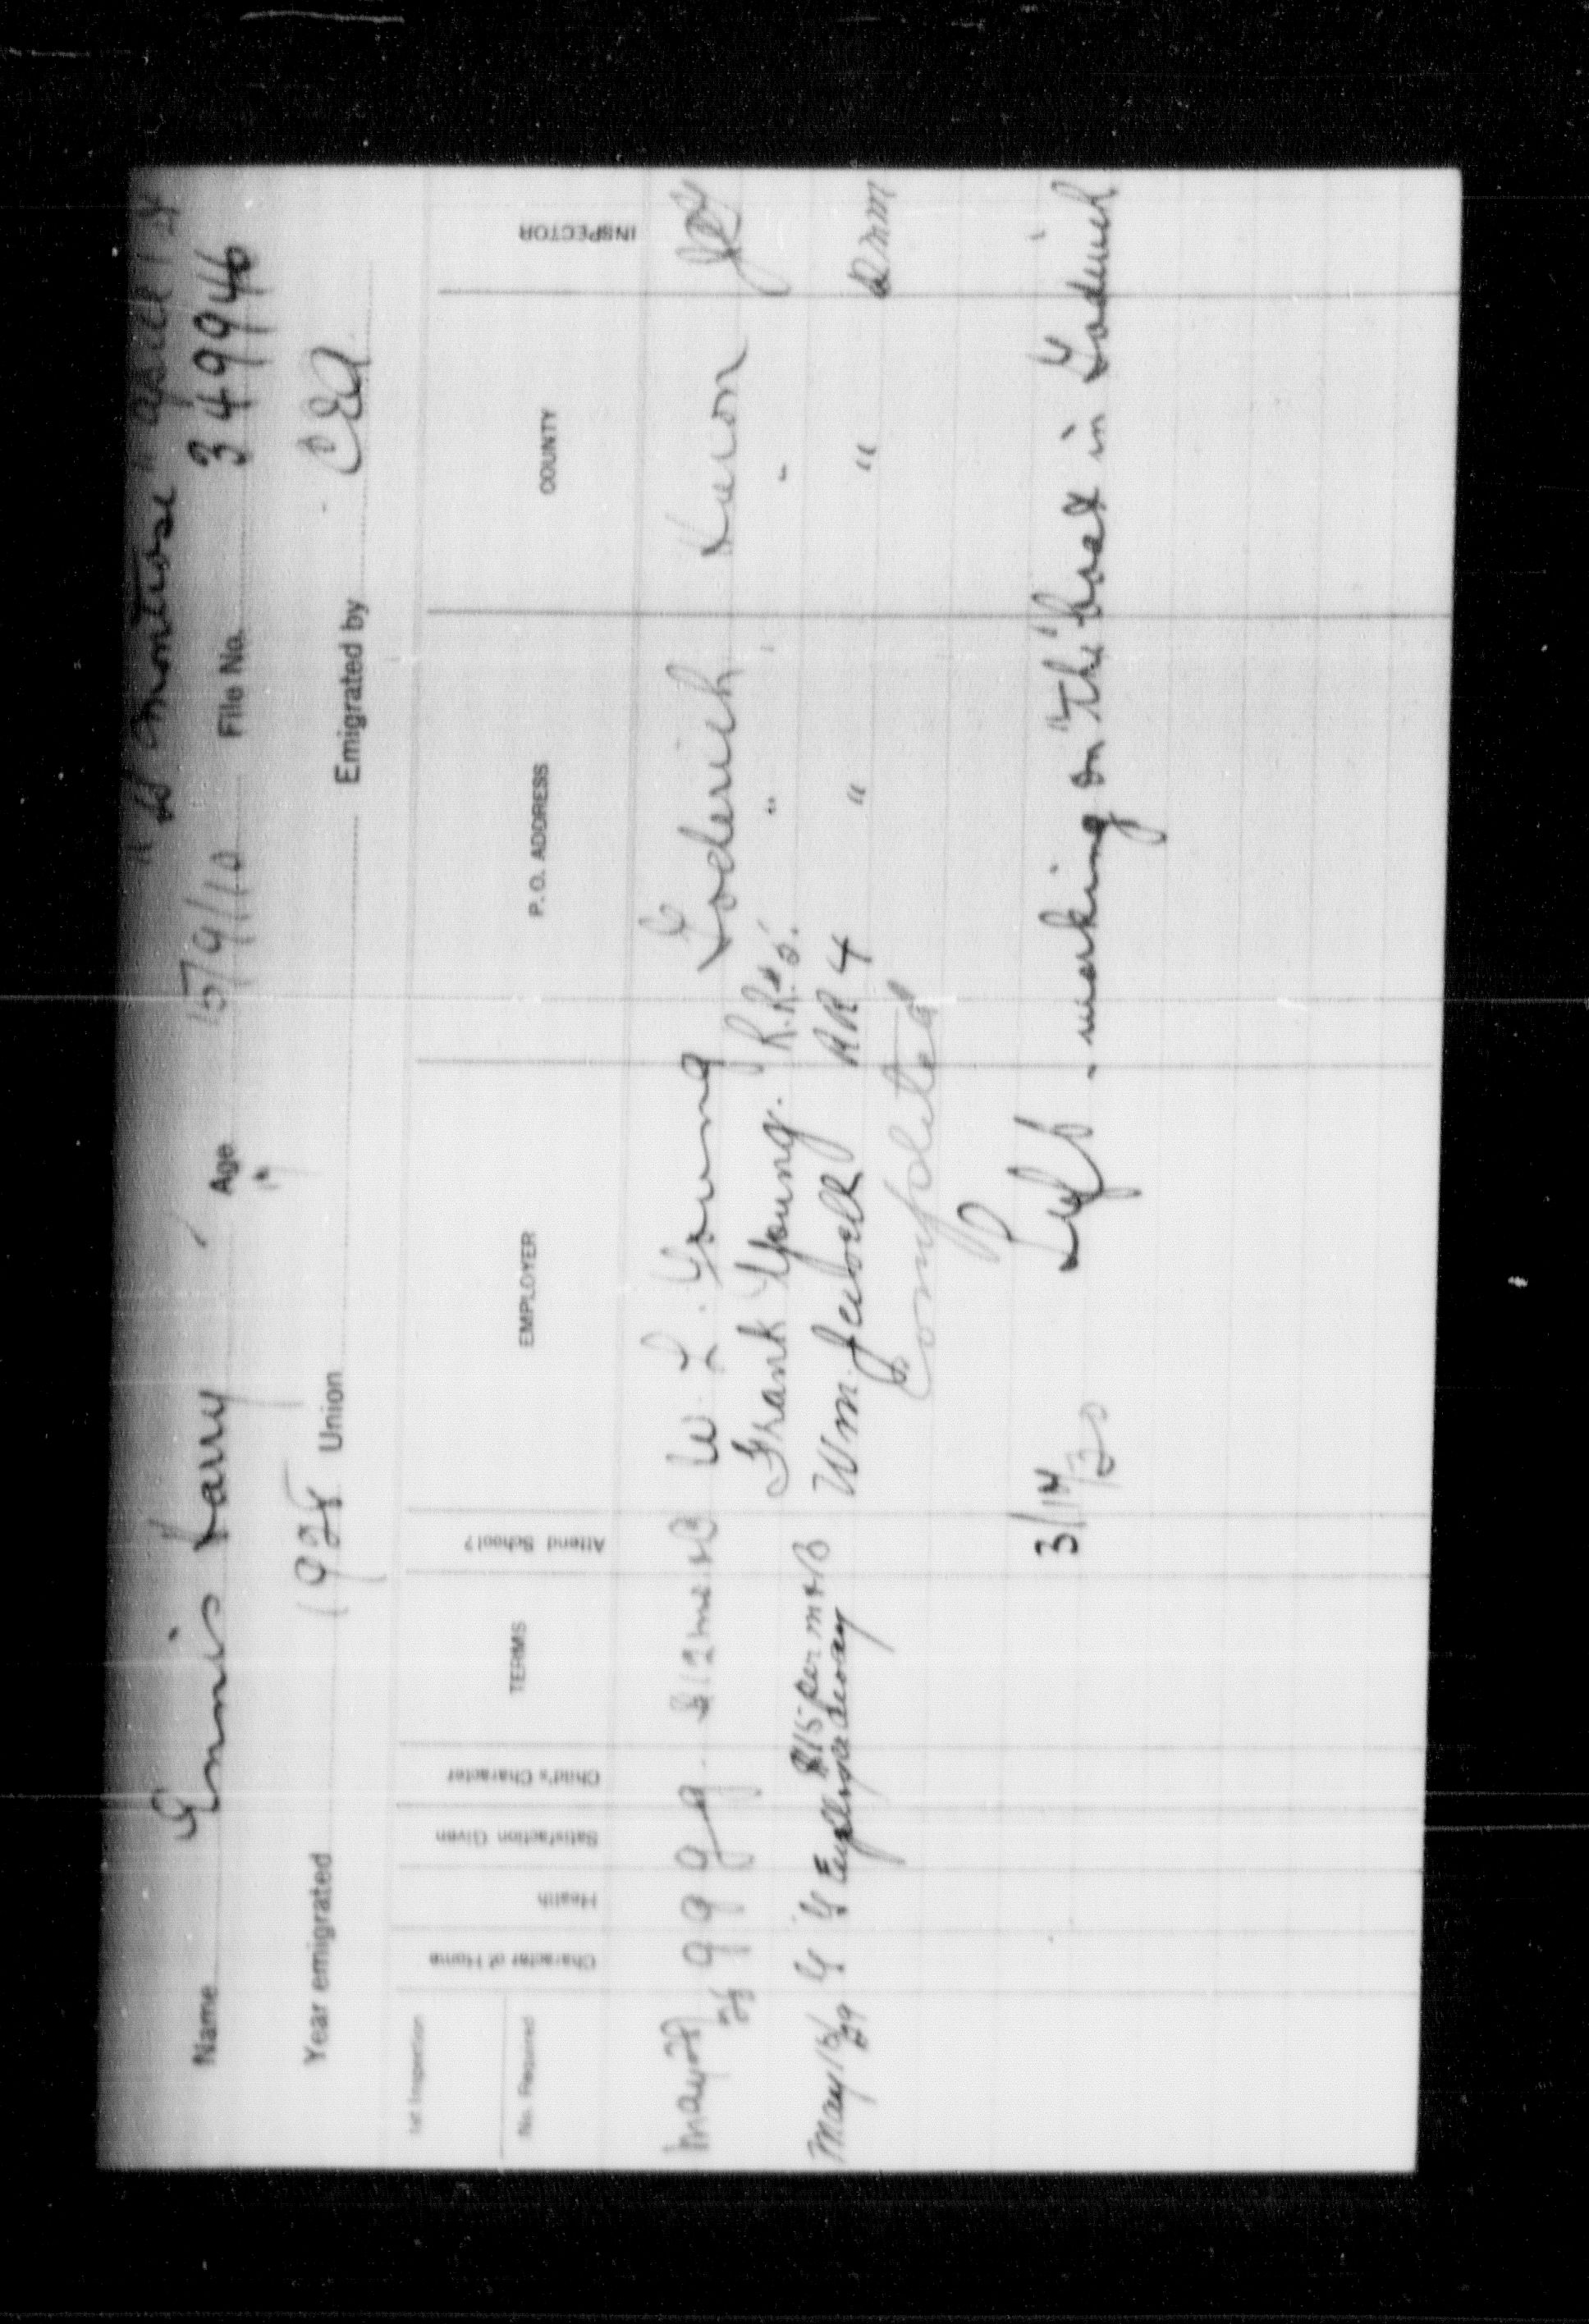 Montrose April 14
Name Ennis Harry Age 15/9/10 File No. 349946
Year emigrated 1928 Union Emigrated by CEA
1st Inspection
No. Required
Character of Home Health Satisfaction Given Child's Character TERMS Attend School? EMPLOYER P.O. ADDRESS COUNTY INSPECTOR
g g g g W. L. Young Goderich Huron
Frank Young. R.R.#5. " "
May 15/29 G G $15 per m & B Wm. Jewell RR 4 " "
Completed
3/14/30 Left - working on "the" boat in Goderich